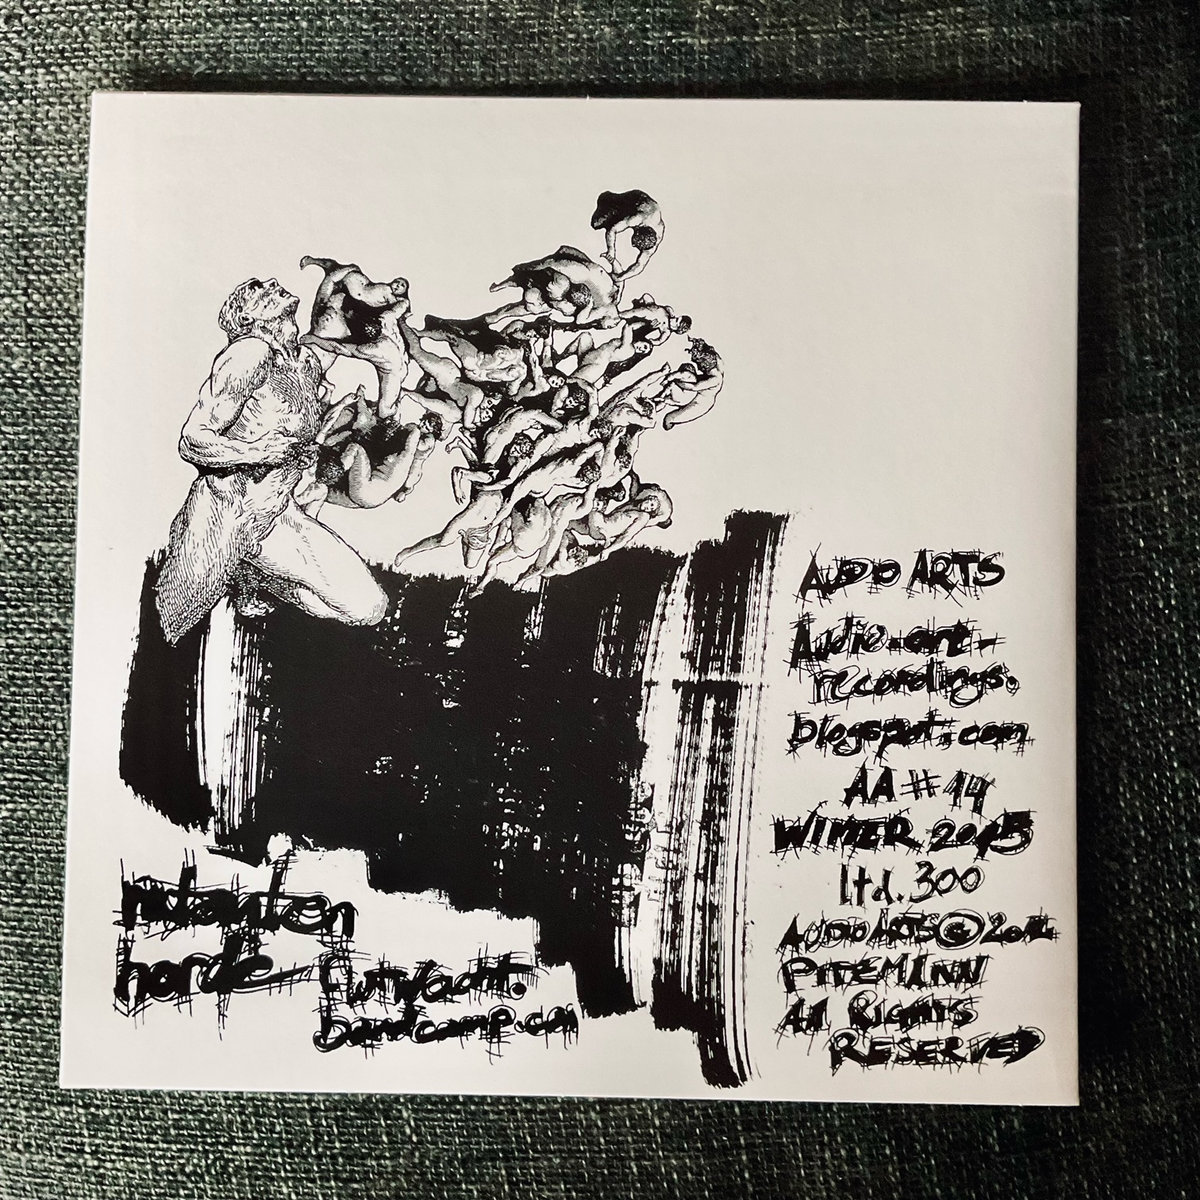 AUDIO ARTS
Audio-art-
recordings.
blogspot.com
AA #14
WINTER 2015
ltd. 300
AUDIO ARTS ©
PITZEMANN
All RIGHTS
RESERVED
horde
flutwacht.
bandcamp.com